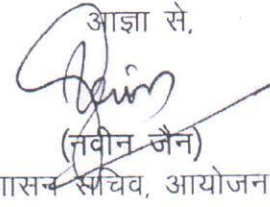 आज्ञा से,
(नवीन जैन)
सचिव, आयोजन